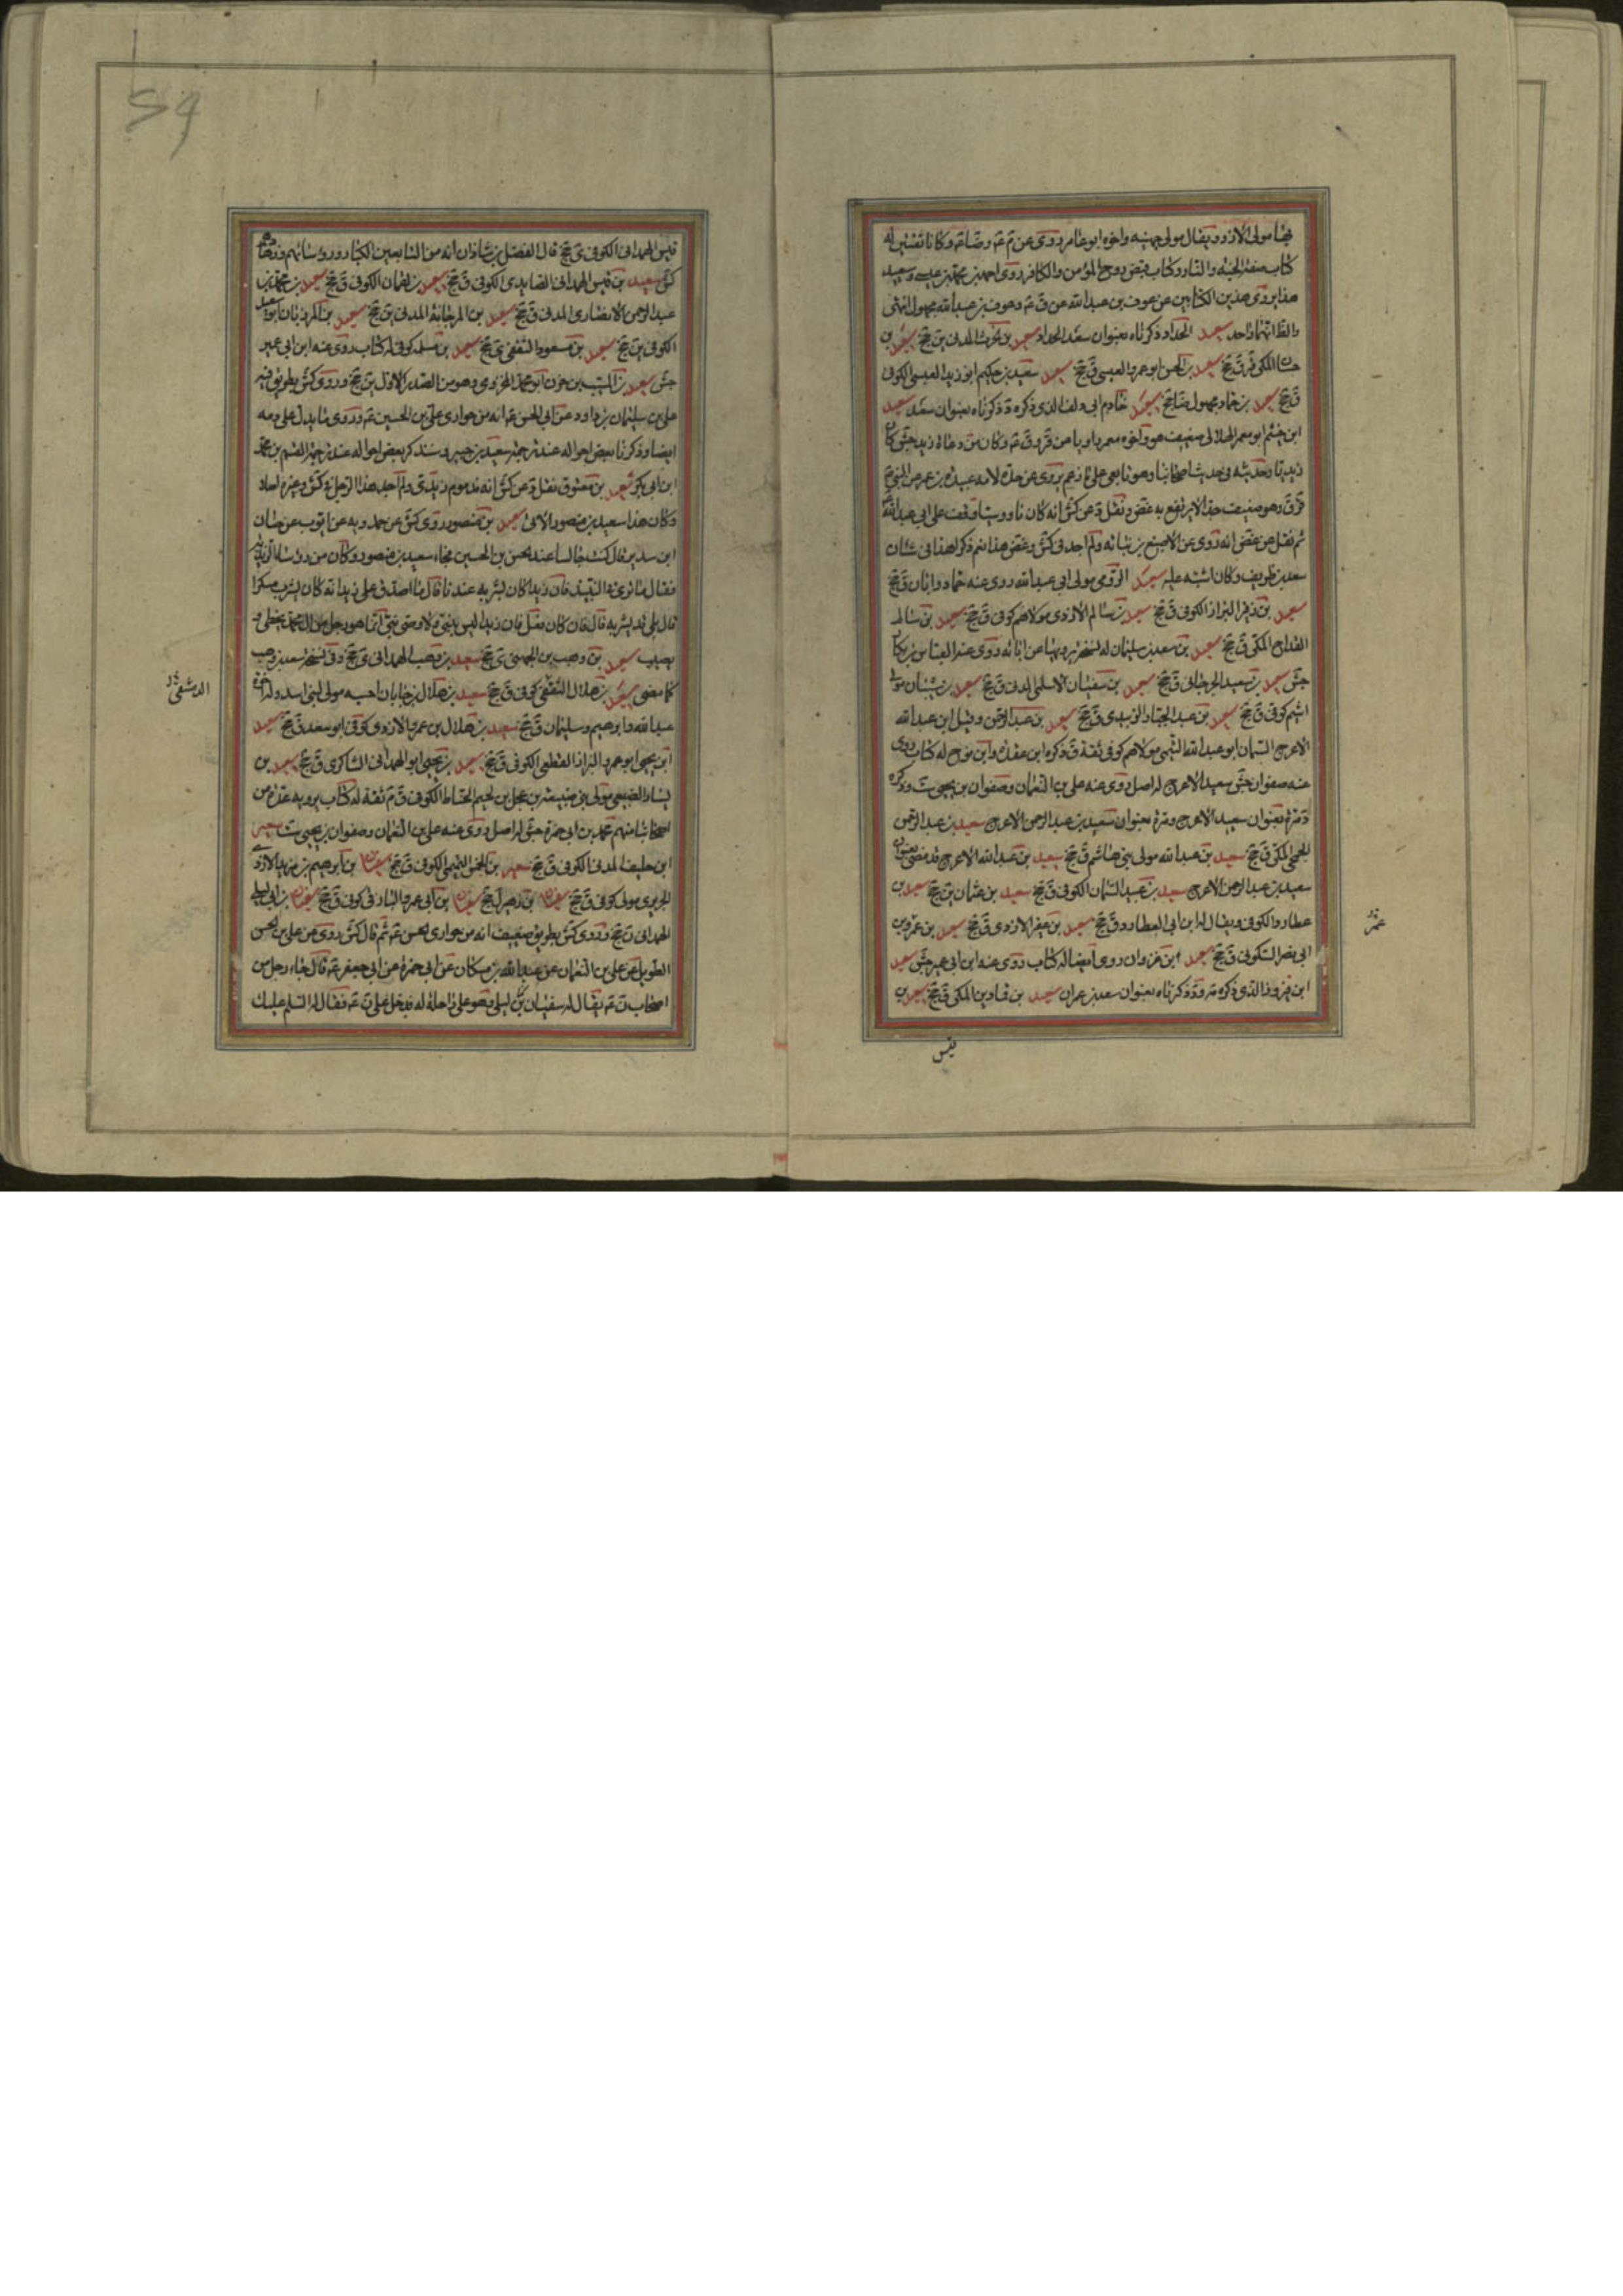 جناح مولى الازد ويقال مولى جهينه واخوه ابو عامر روى عن م عم وضا عم وكانا ثقتين له
كتاب صفة الجنة والنار وكتاب قبض روح المؤمن والكافر روى احمد بن محمد بن عيسى وسعيد
هذا يروى هذين الكتابين عن عوف بن عبد الله عن ق عم وعوف بن عبد الله مجهول انتهى
والظ اتهما واحد سعيد الحداد ذكرناه بعنوان سعد الحداد سعيد بن الحرث المدنى ين جخ سعيد بن
حسان المكى ق جخ سعيد بن الحسن ابو عمرو العبسى ق جخ سعيد سعيد بن حكيم ابو زيد العبسى الكوفى
ق جخ سعيد بن حماد مجهول ضا جخ سعيد خادم ابى دلف الذى ذكره د ذكرناه بعنوان سعد سعيد
ابن خثيم ابو معمر الهلالى ضعيف هو واخوه معمر رويا عن قر و ق عم وكان من دعاة زيد جش كان
زيديا وحديثه فى حديث اصحابنا وهو تابعى على ما زعم يروى عن جدة لامه عبيدة بن عمر عن النبى ع
قر ق وهو ضعيف جدا لا يرتفع به غض ونقل د عن كش انه كان ناووسيا وقف على ابى عبد الله
ثم نقل عن غض انه روى عن الاصبغ بن نباته ولم اجد فى كش وغض هذا نعم ذكر لهذا فى شان
سعد بن ظريف وكان اشبه عليه سعيد الرومى مولى ابى عبد الله روى عنه حماد وابان ق جخ
سعيد بن زفر البزاز الكوفى ق جخ سعيد بن سالم الازدى مولاهم كوفى ق جخ سعيد بن سالم
القداح المكى ق جخ سعيد بن سعيد بن سليمان له نسخة يرويها عن ابائه روى عنه العباس بن بكار
جش سعيد بن سعيد الجرجانى ق جخ سعيد بن سفيان الاسلمى المدنى ق جخ سعيد بن شيبان مولى
اشيم كوفى ق جخ سعيد بن عبد الجبار الزبيدى ق جخ سعيد بن عبد الرحمن وقيل ابن عبد الله
الاعرج السمان ابو عبد الله التيمى مولاهم كوفى ثقة ق ذكره ابن عقدة وابن نوح له كتاب روى
عنه صفوان جش سعيد الاعرج له اصل روى عنه على بن النعمان وصفوان بن يحيى ست وذكره
د مرة بعنوان سعيد الاعرج ومرة بعنوان سعيد بن عبد الرحمن الاعرج سعيد بن عبد الرحمن
الجمحى المكى ق جخ سعيد بن عبد الله مولى بنى هاشم ق جخ سعيد بن عبد الله الاعرج قد مضى بعنوان
سعيد بن عبد الرحمن الاعرج سعيد بن عبيد السمان الكوفى ق جخ سعيد بن عثمان ين جخ سعيد بن
عطارد الكوفى ويقال له ابن ابى العطارد ق جخ سعيد بن عفير الازدى ق جخ سعيد بن عمرو بن
ابى نصر السكونى ق جخ سعيد ابن غزوان روى ايضا له كتاب روى عنه ابن ابى عمير جش سعيد
ابن فيروز الذى ذكره مر و د ذكرناه بعنوان سعد بن عمران سعيد بن قمادين المكى ق جخ سعيد بن
قيس
قيس الهمدانى الكوفى ى جخ قال الفضل بن شاذان انه من التابعين الكبار ورؤسائهم وزهادهم
كش سعيد بن قيس الهمدانى الصايدى الكوفى ق جخ سعيد بن لقمان الكوفى ق جخ سعيد بن محمد بن
عبد الرحمن الانصارى المدنى ق جخ سعيد بن المرجانة المدنى ين جخ سعيد بن المرزبان ابو سعيد
الكوفى ين جخ سعيد بن مسعود الثقفى ى جخ سعيد بن مسلمه كوفى له كتاب روى عنه ابن ابى عمير
جش سعيد بن المسيب بن حزن ابو محمد المخزومى وهو من الصدر الاول ين جخ وروى كش بطريق فيه
على بن سليمان بن داود عن ابى الحسن عم انه من حوارى على بن الحسين عم وروى ما يدل على ذمه
ايضا وذكرنا بعض احواله عند ترجمة سعيد بن جبير وسنذكر بعض احواله عند ترجمة القسم بن محمد
ابن ابى بكر سعيد بن معتوق نقل د عن كش انه مذموم زيدى ولم اجد هذا الرجل فى كش وغيره اصلا
وكان هذا سعيد بن منصور الاتى سعيد بن منصور روى كش عن حمدويه عن ايوب عن حنان
ابن سدير قال كنت جالسا عند الحسن بن الحسين فجاء سعيد بن منصور وكان من رؤساء الزيدية
فقال ما ترى فى النبيذ فان زيدا كان يشربه عندنا قال ما اصدق على زيد انه كان يشرب مسكرا
قال بلى قد يشربه قال فان كان فعل فان زيدا ليس بنبى ولا وصى نبى انما هو رجل من ال محمد يخطى و
يصيب سعيد بن وهب بن الجهنى ى جخ سعيد بن وهب الهمدانى ى جخ وفى نسخة سعد بن وهب
كما مضى سعيد بن هلال الثقفى كوفى ق جخ سعيد بن هلال بن جابان احسبه مولى لبنى اسد وله اخوة
الدمشقى
عبد الله وابرهيم وسليمان ق جخ سعيد بن هلال بن عمرو الازدى كوفى ابو سعد ق جخ سعيد
ابن يحيى ابو عمرو البزاز القطعى الكوفى ق جخ سعيد بن يحيى ابو الهمدانى الشاكرى ق جخ سعيد بن
يسار الضبيعى مولى بنى ضبيعة بن عجل بن لجيم الحناط الكوفى ق م ثقة له كتاب يرويه عدة من
اصحابنا منهم محمد بن ابى حمزة جش له اصل روى عنه على بن النعمان وصفوان بن يحيى ست سعير
ابن خليفة المدنى الكوفى ق جخ سعير بن الخمس التيمى الكوفى ق جخ سفيان بن ابرهيم بن مزيد الازدى
الجريرى مولى كوفى ق جخ سفيان بن ابى عمرو البارقى كوفى ق جخ سفيان بن ابى ليلى
الهمدانى ن جخ وروى كش بطريق ضعيف انه من حوارى الحسن عم ثم قال كش روى عن على بن الحسن
الطويل عن على بن النعمان عن عبد الله بن مسكان عن ابى حمزة عن ابى جعفر عم قال جاء رجل من
اصحاب ن عم يقال له سفيان بن ليلى وهو على راحلة له فدخل على ن عم فقال له السلم عليك